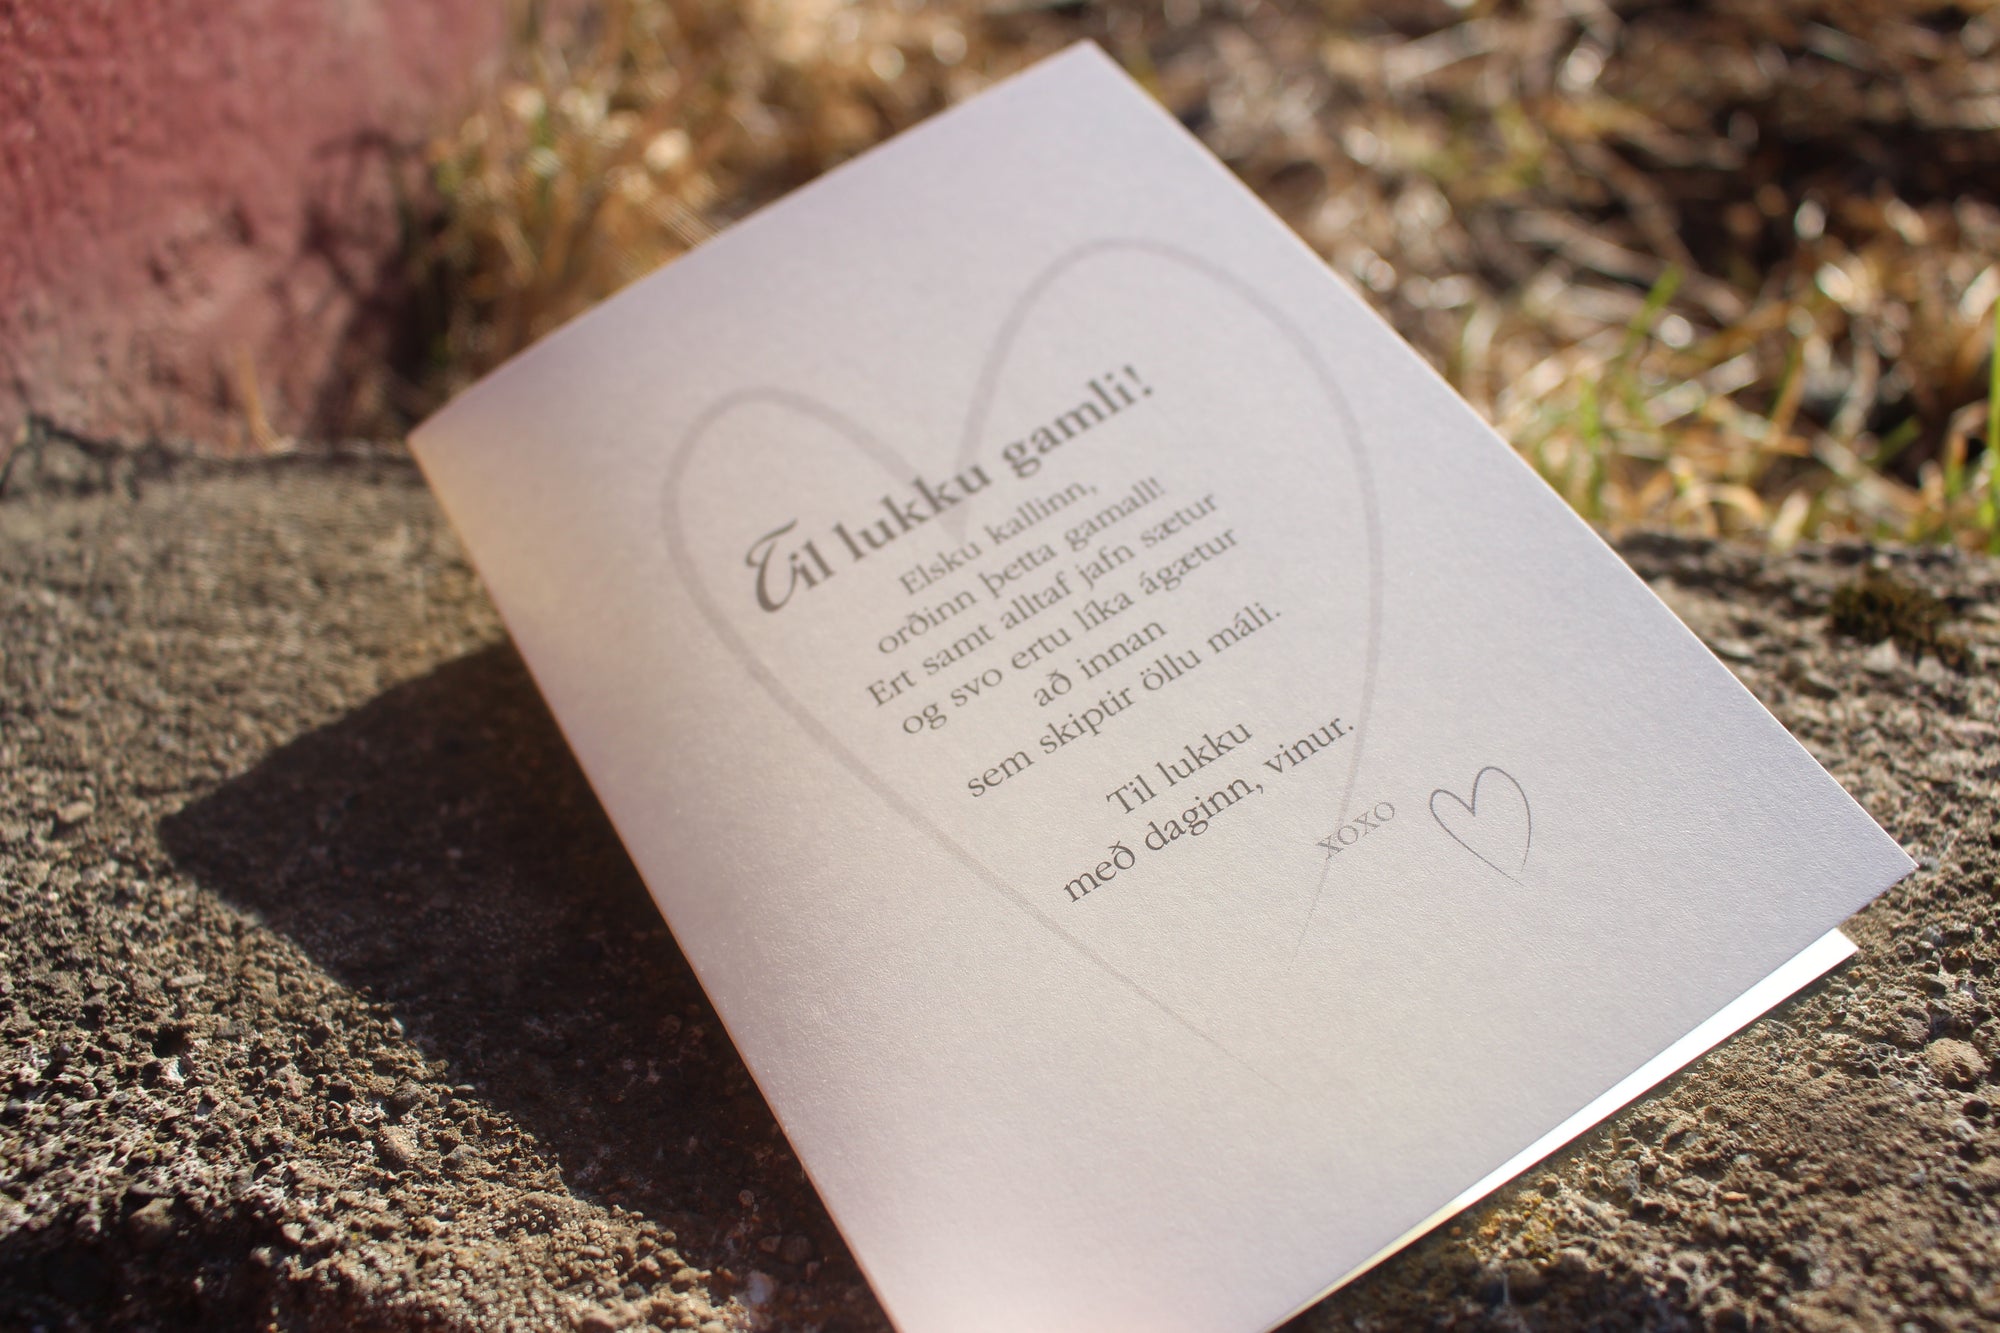 Til lukku gamli!
Elsku kallinn,
orðinn þetta gamall!
Ert samt alltaf jafn sætur
og svo ertu líka ágætur
að innan
sem skiptir öllu máli.
Til lukku
með daginn, vinur.
xoxo